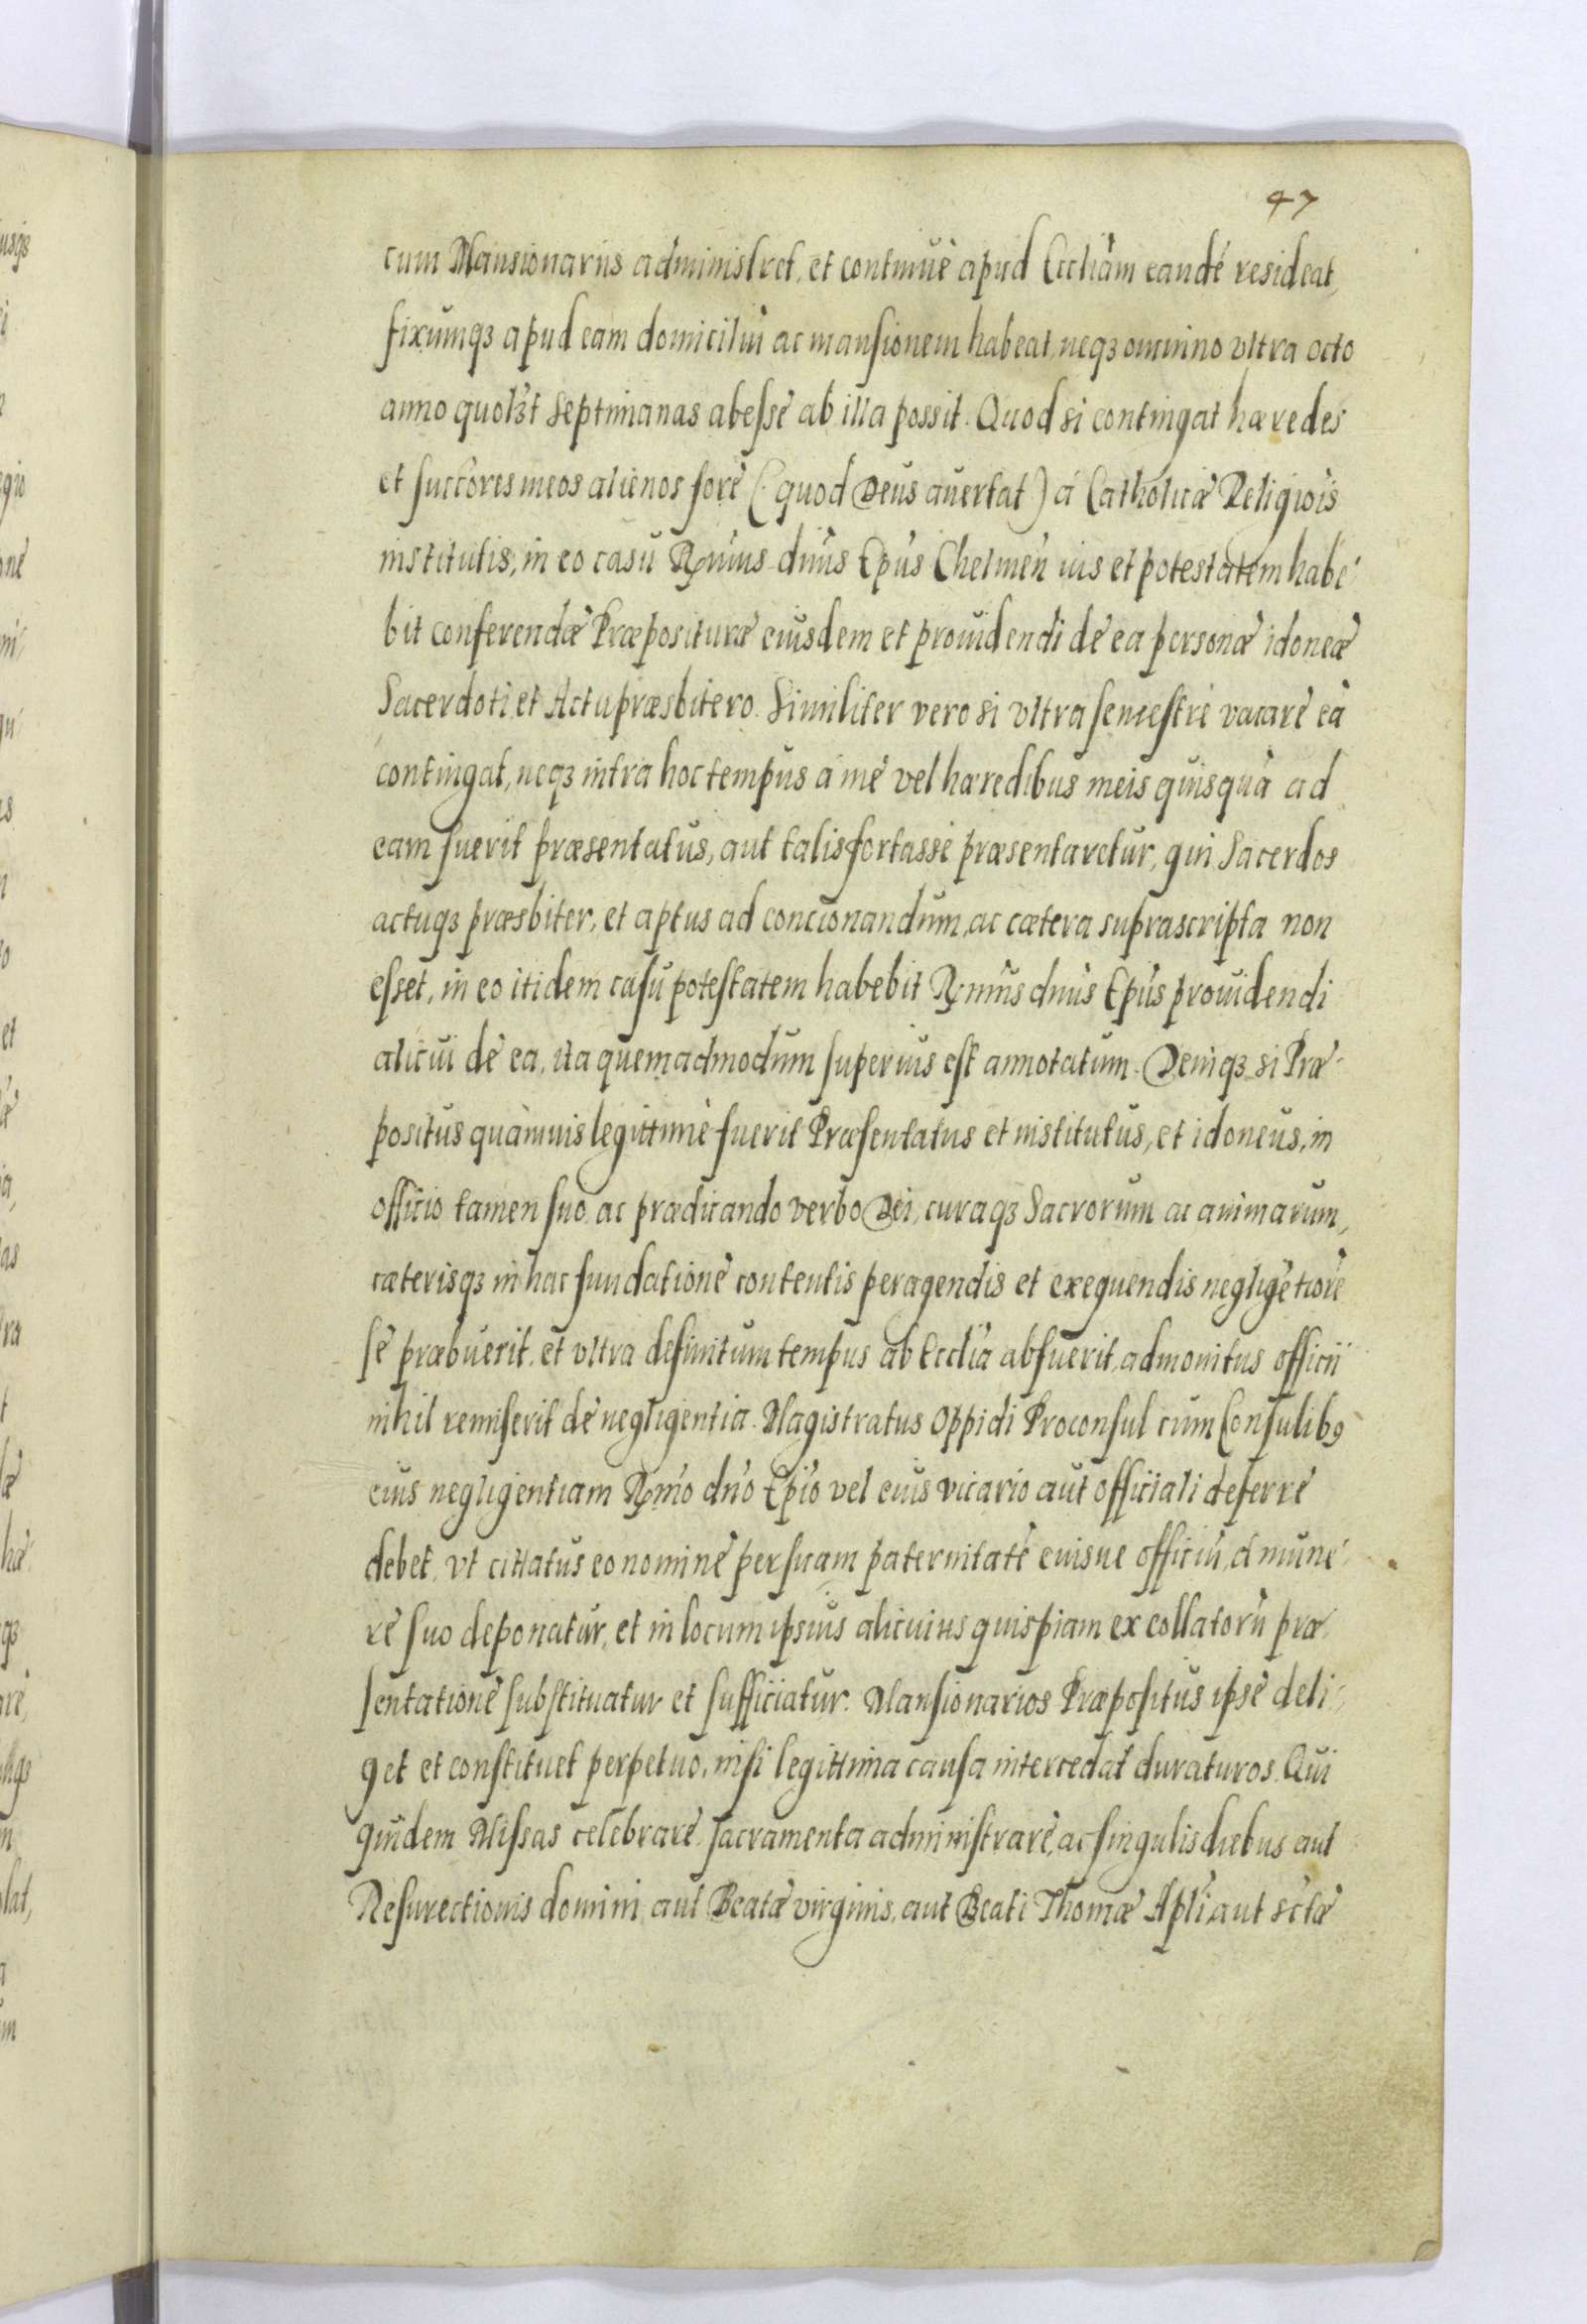 47
cum Mansionariis administret, et continuè apud Eccliam eandē resideat,
fixumqȝ apud eam domiciliū ac mansionem habeat, neqȝ omnino vltra octo
anno quolȝt Septimanas abesse ab illa possit. Quod si contingat hæredes
et succores meos alienos fore (quod Deus auertat) à Catholicæ Religiois
institutis, in eo casu Rmus dnus Epus Chelmen ius et potestatem habe-
bit conferendæ Præposituræ eiusdem et prouidendi de ea personæ idoneæ
Sacerdoti et Actu præsbitero. Similiter vero si vltra semestre vacare eā
contingat, neqȝ intra hoc tempus a me vel hæredibus meis quisquā ad
eam fuerit præsentatus, aut talis fortasse præsentaretur, qui Sacerdos
actuqȝ præsbiter, et aptus ad concionandum, ac cætera suprascripta non
esset, in eo itidem casu potestatem habebit Rmus dnus Epus prouidendi
alicui de ea, ita quemadmodum superius est annotatum. Deniqȝ si Præ-
positus quamuis legittimè fuerit Præsentatus et institutus, et idoneus, in
officio tamen suo, ac prædicando verbo Dei, curaqȝ Sacrorum ac animarum,
cæterisqȝ in hac fundatione contentis peragendis et exequendis negligētiorē
se præbuerit, et vltra definitum tempus ab Ecclia abfuerit, admonitus officii
nihil remiserit de negligentia. Magistratus Oppidi Proconsul cum Consulibꝰ
eius negligentiam Rmo dno Epio vel eius vicario aut officiali deferre
debet, vt cittatus eo nomine per suam paternitatē euisue officiū, à mune-
re suo deponatur, et in locum ipsius alicuius quispiam ex collatorū præ-
sentatione substituatur et sufficiatur. Mansionarios Præpositus ipse deli-
get et constituet perpetuo, nisi legittima causa intercedat duraturos. Qui
quidem Missas celebrare, sacramenta administrare, ac singulis diebus aut
Resurectionis domini, aut Beatæ virginis, aut Beati Thomæ Apli, aut sctæ